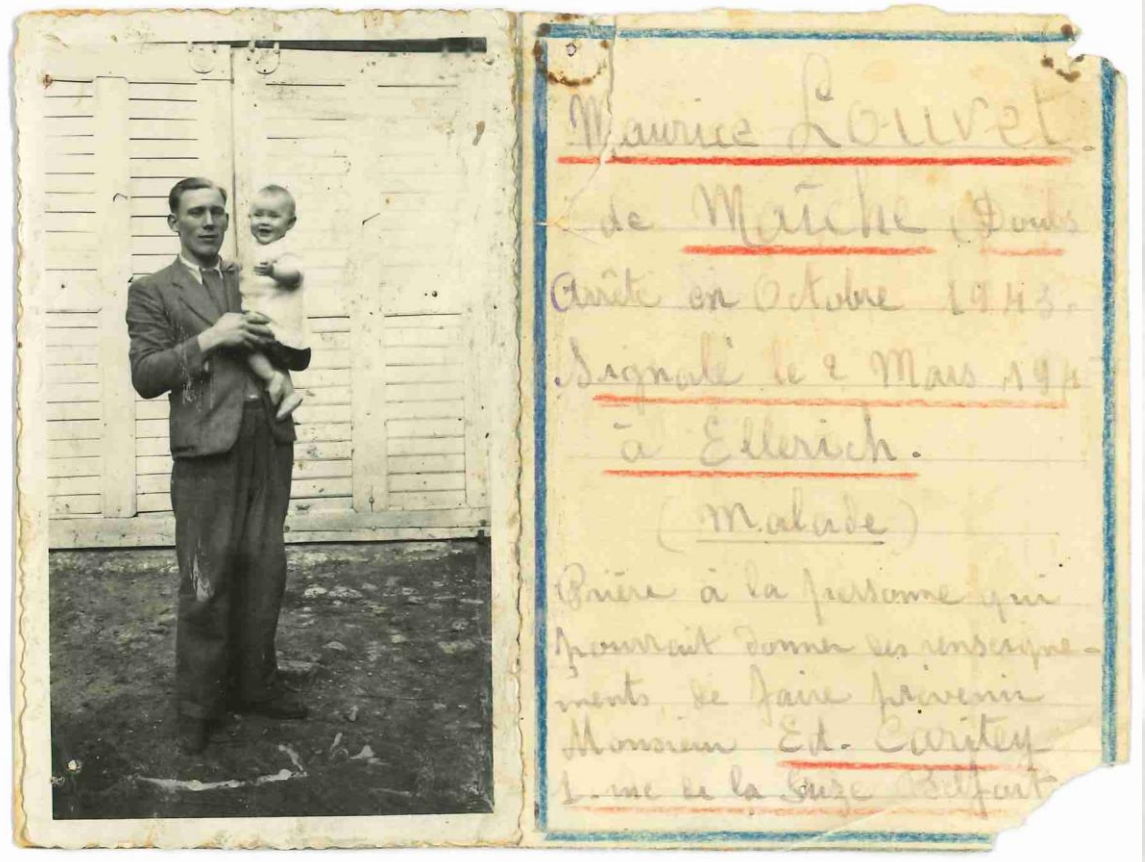 Maurice Louvet.
de Maîche (Doubs
Arrêté en Octobre 1943.
Signalé le 2 Mars 194
à Ellerich.
(Malade)
Prière à la personne qui
pourrait donner des renseigne-
ments, de faire prévenir
Monsieur Ed. Caritey
1. rue de la Suze Belfort